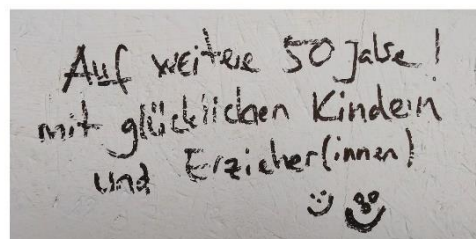 Auf weitere 50 Jahre!
mit glücklichen Kindern
und Erzieher(innen)